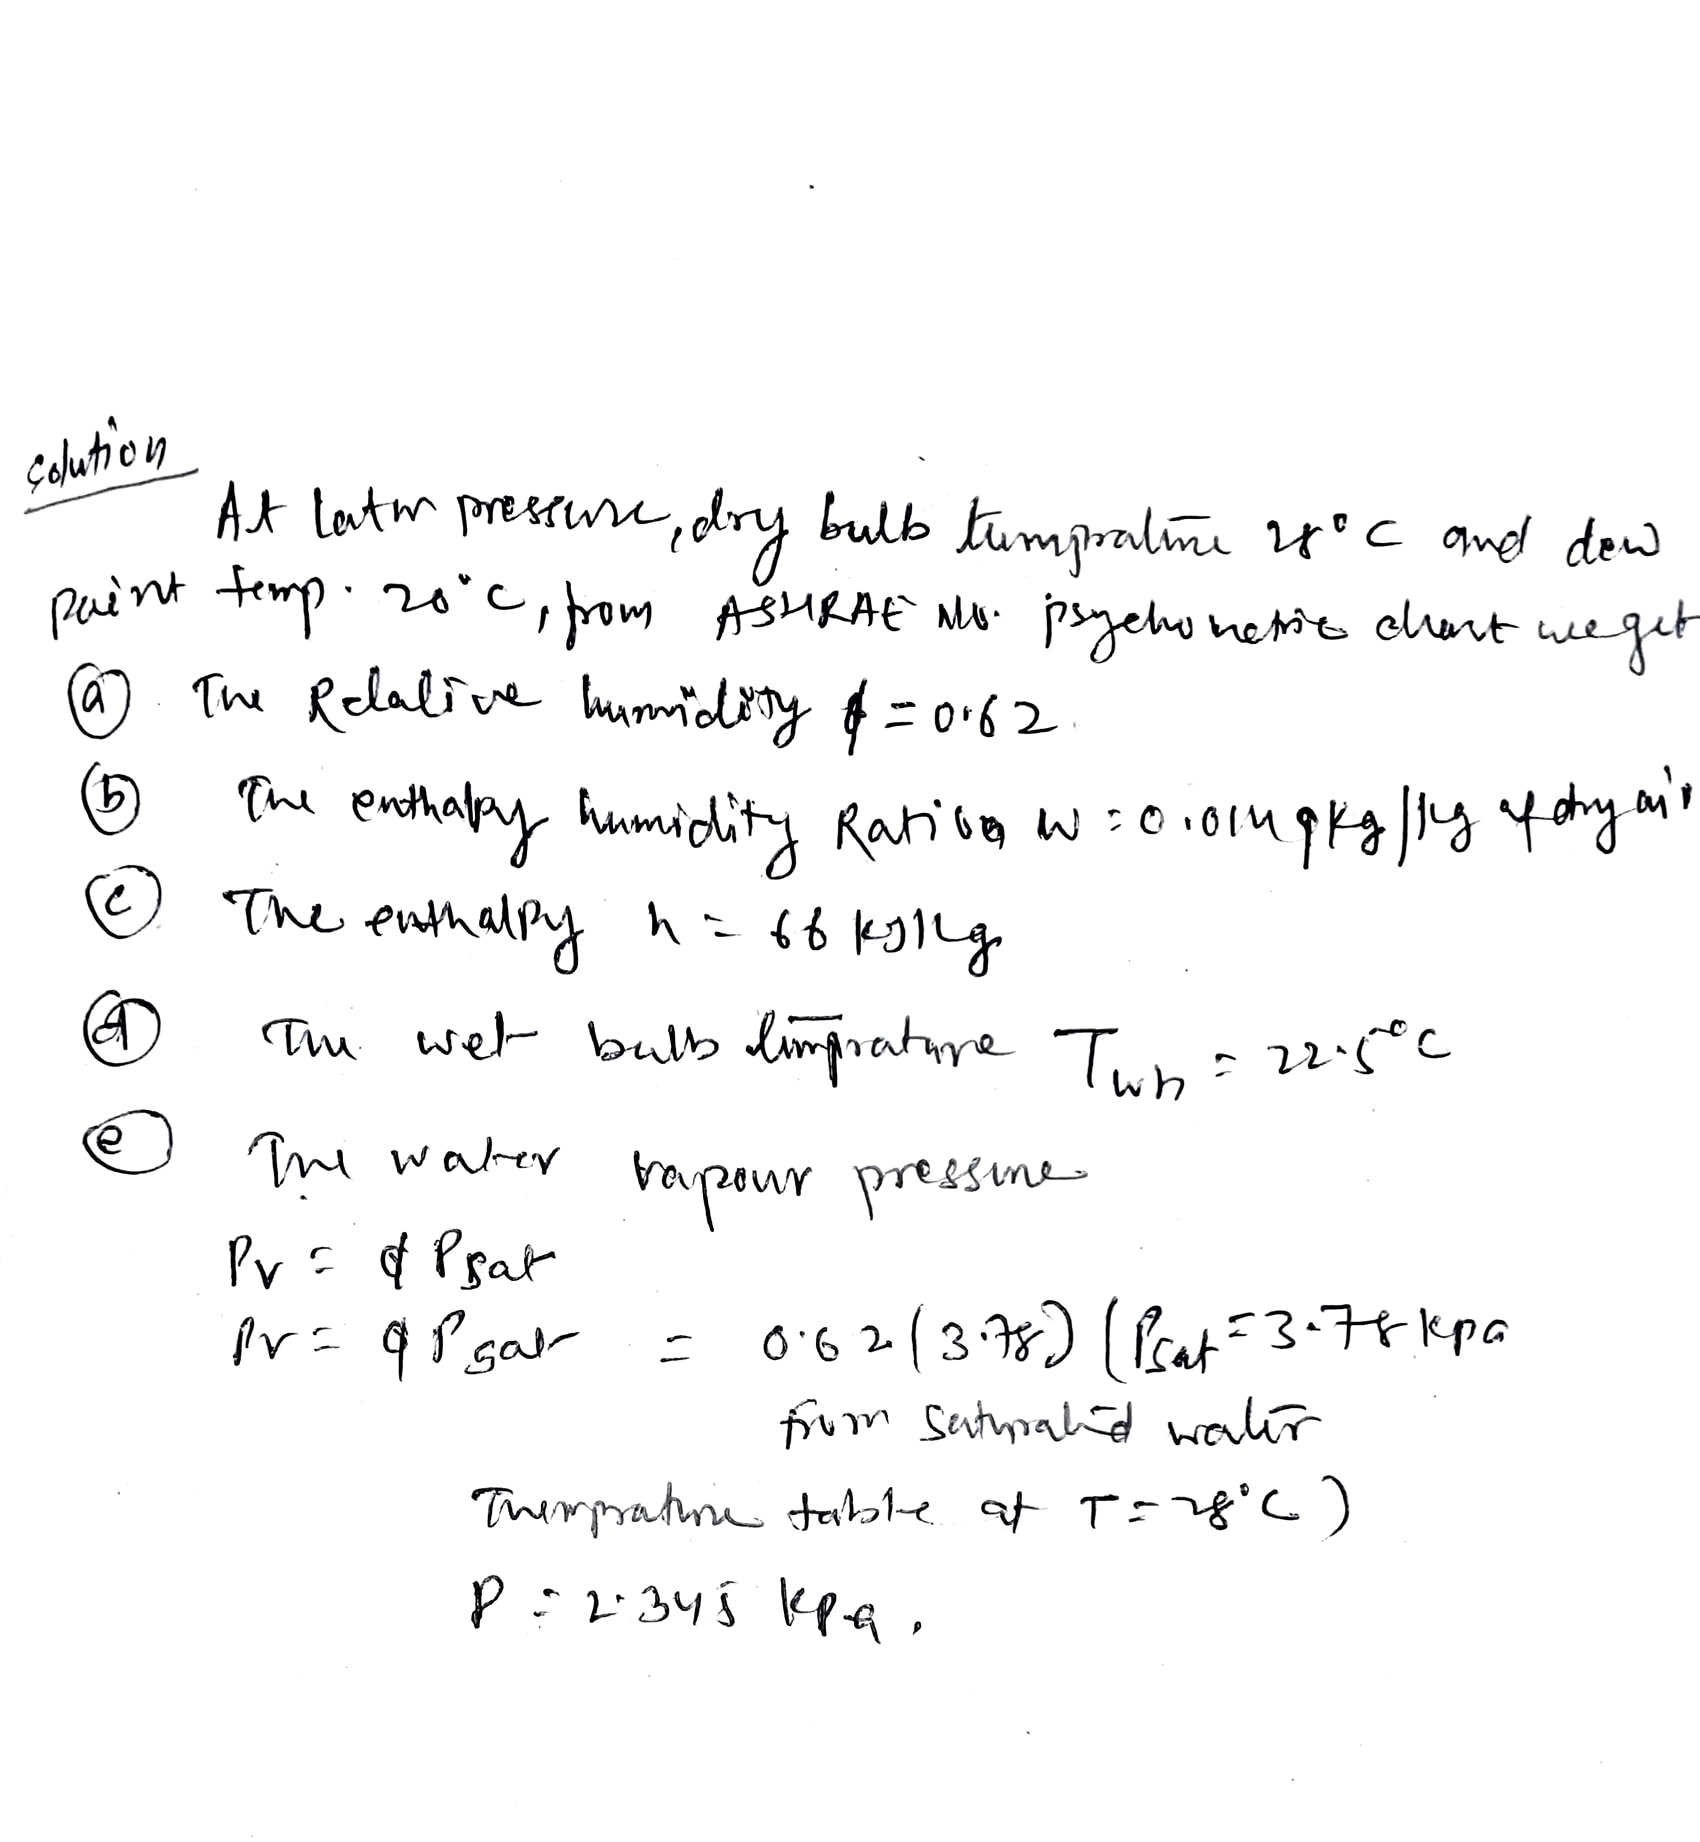 Solution
At 1atm pressure, dry bulb temprature 28°C and dew
point temp. 20°C, from ASHRAE No. psychometric chart we get
(a) The Relative humidity ϕ = 0.62
(b) The enthalpy humidity Ratio W = 0.0149kg/kg of dry air
(c) The enthalpy h = 66 kJ/kg
(d) The wet bulb temprature Twb = 22.5°C
(e) The water vapour pressure
Pv = ϕ Psat
Pv = ϕ Psat = 0.62(3.78) (Psat = 3.78 kpa
from saturated water
Themprature table at T = 28°C)
P = 2.345 kpa.